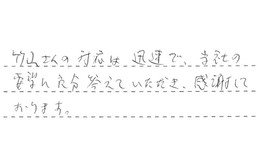 竹山さんの対応は迅速で、当社の
要望に充分答えていただき、感謝して
おります。